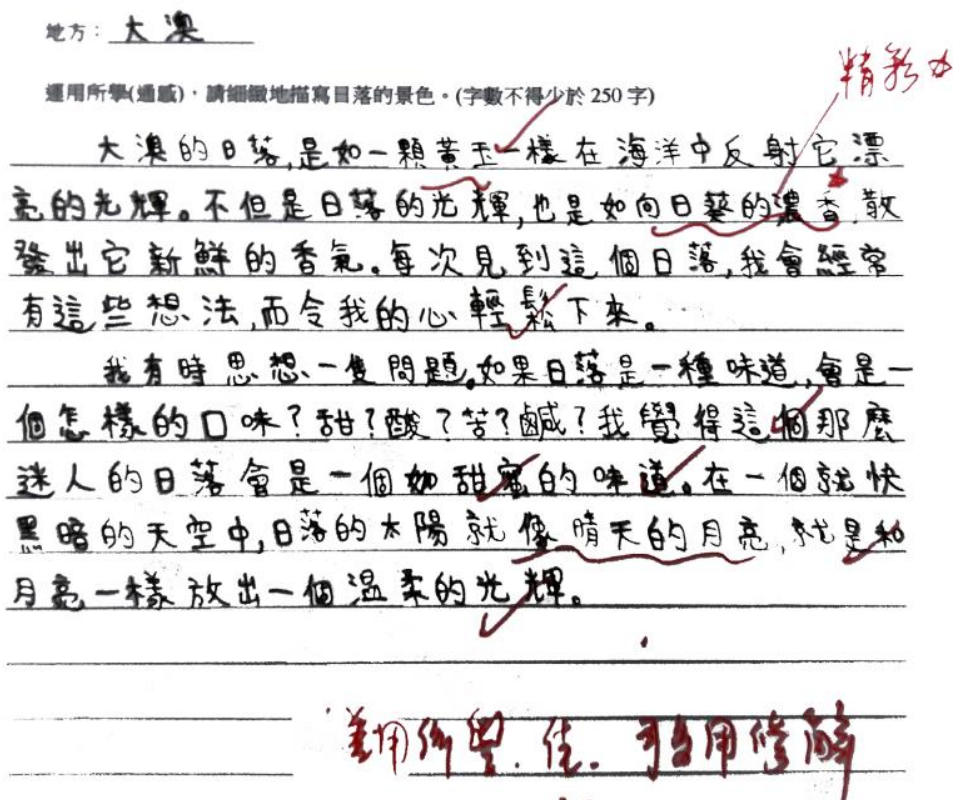 地方：大澳
精彩
運用所學(通感)，請細緻地描寫日落的景色。(字數不得少於 250 字)
大澳的日落,是如一顆黃玉一樣在海洋中反射它漂
亮的光輝。不但是日落的光輝,也是如向日葵的濃香,散
發出它新鮮的香氣。每次見到這個日落,我會經常
有這些想法,而令我的心輕鬆下來。
我有時思想一隻問題。如果日落是一種味道,會是一
個怎樣的口味?甜?酸?苦?鹹?我覺得這個那麼
迷人的日落會是一個如甜蜜的味道。在一個就快
黑暗的天空中,日落的太陽就像晴天的月亮,就是和
月亮一樣放出一個溫柔的光輝。
善用所學.佳.可多用修辭